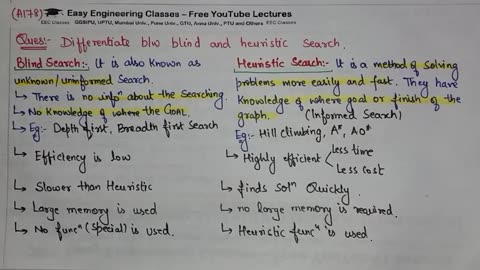 (A178)
Easy Engineering Classes – Free YouTube Lectures
EEC Classes
GGSIPU, UPTU, Mumbai Univ., Pune Univ., GTU, Anna Univ., PTU and Others EEC Classes
Ques:- Differentiate b/w blind and heuristic Search.
Blind Search:- It is also known as
unknown/uninformed Search.
↳ There is no infoⁿ about the Searching.
↳ No Knowledge of where the GOAL.
↳ Eg:- Depth first, Breadth first Search
↳ Efficiency is low
↳ Slower than Heuristic
↳ Large memory is used
↳ No funcⁿ (Special) is used.
Heuristic Search:- It is a method of solving
problems more easily and fast. They have
Knowledge of where goal or finish of the
graph. (Informed Search)
Eg:- Hill Climbing, A*, AO*
↳ Highly efficient
less time
less cost
↳ finds solⁿ Quickly.
↳ no large memory is required.
↳ Heuristic funcⁿ is used.